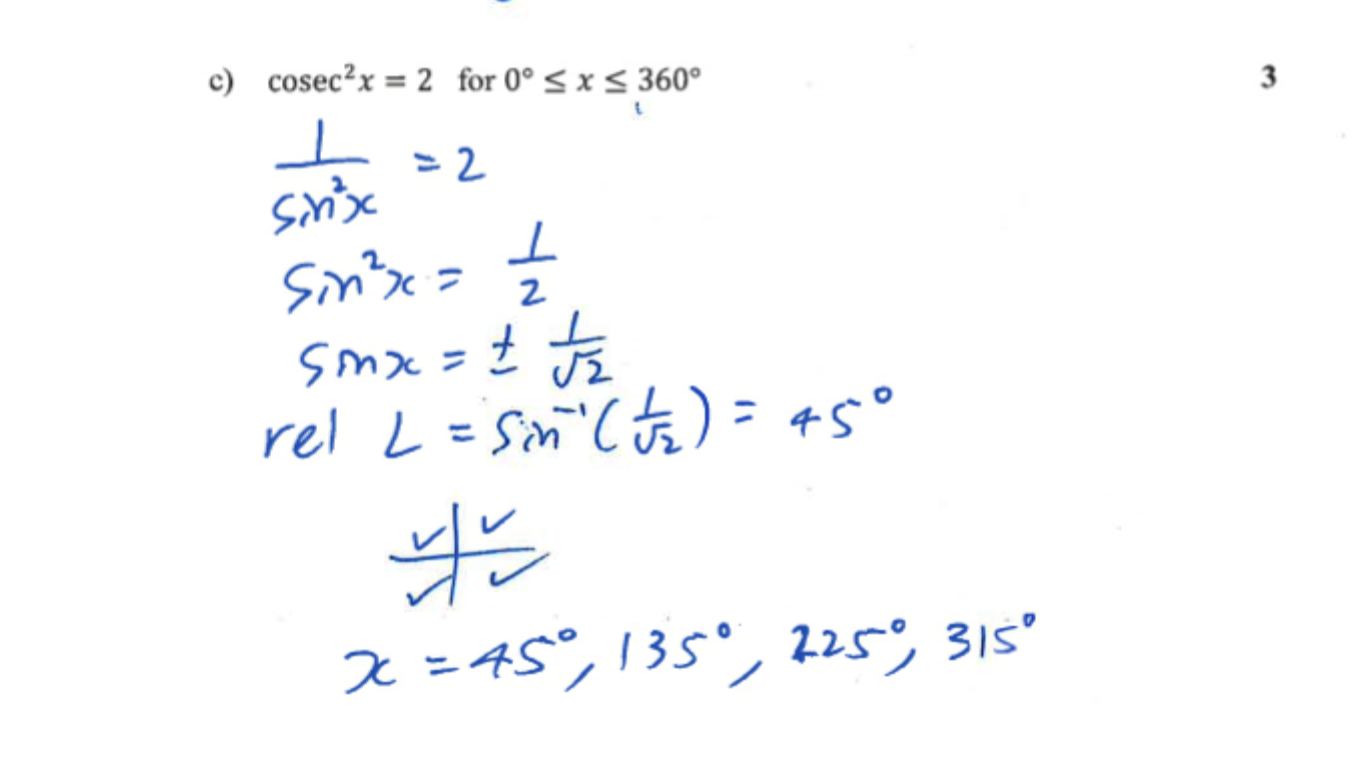 c) cosec²x = 2 for 0° ≤ x ≤ 360° 3
1/sin²x = 2
sin²x = 1/2
sinx = ± 1/√2
rel ∠ = sin⁻¹(1/√2) = 45°
✓ ✓
✓ ✓
x = 45°, 135°, 225°, 315°